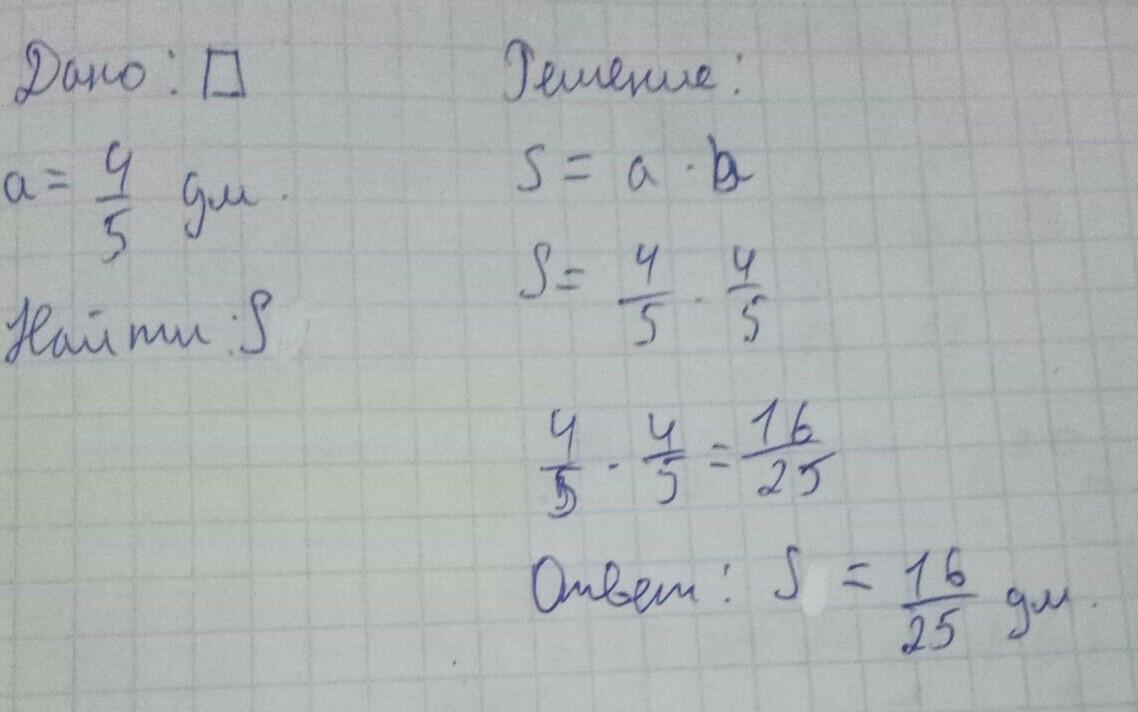 Дано: □
a = 4/5 дм.
Найти: S
Решение:
S = a · a
S = 4/5 · 4/5
4/5 · 4/5 = 16/25
Ответ: S = 16/25 дм.